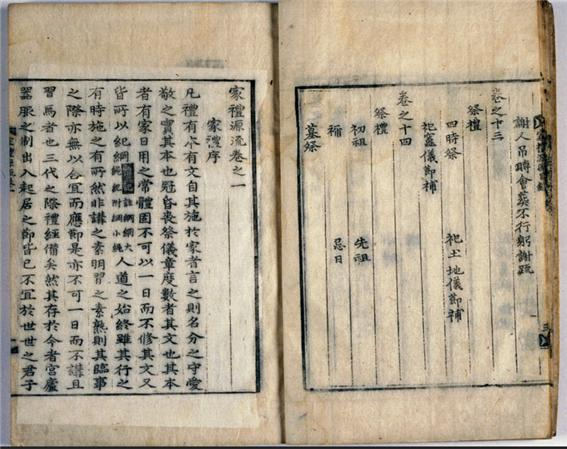 謝人吊賻會葬不行躬謝疏
卷之十三
祭禮
四時祭 祀土地儀節補
祀竈儀節補
卷之十四
祭禮
初祖 先祖
禰 忌日
墓祭
家禮源流卷之一
家禮序
凡禮有本有文自其施於家者言之則名分之守愛
敬之實其本也冠昏喪祭儀章度數者其文也其本
者有家日用之常體固不可以一日而不修其文又
皆所以紀綱 註綱綱大繩紀附綱小繩 人道之始終雖其行之
有時施之有所然非講之素明習之素熟則其臨事
之際亦無以合宜而應節是亦不可一日而不講且
習焉者也三代之際禮經備矣然其存於今者宮廬
器服之制出入起居之節皆已不宜於世世之君子